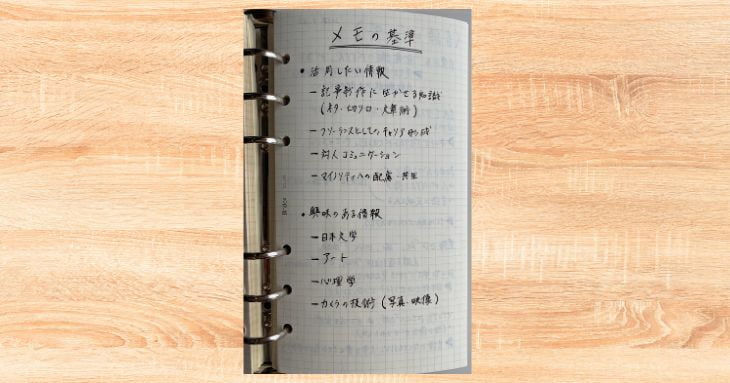 メモの基準
• 活用したい情報
– 記事制作に生かせる知識
(ネタ・切り口・文章術)
– フリーランスとしてのキャリア形成
– 対人コミュニケーション
– マイノリティへの配慮・共生
• 興味のある情報
– 日本文学
– アート
– 心理学
– カメラの技術 (写真・映像)